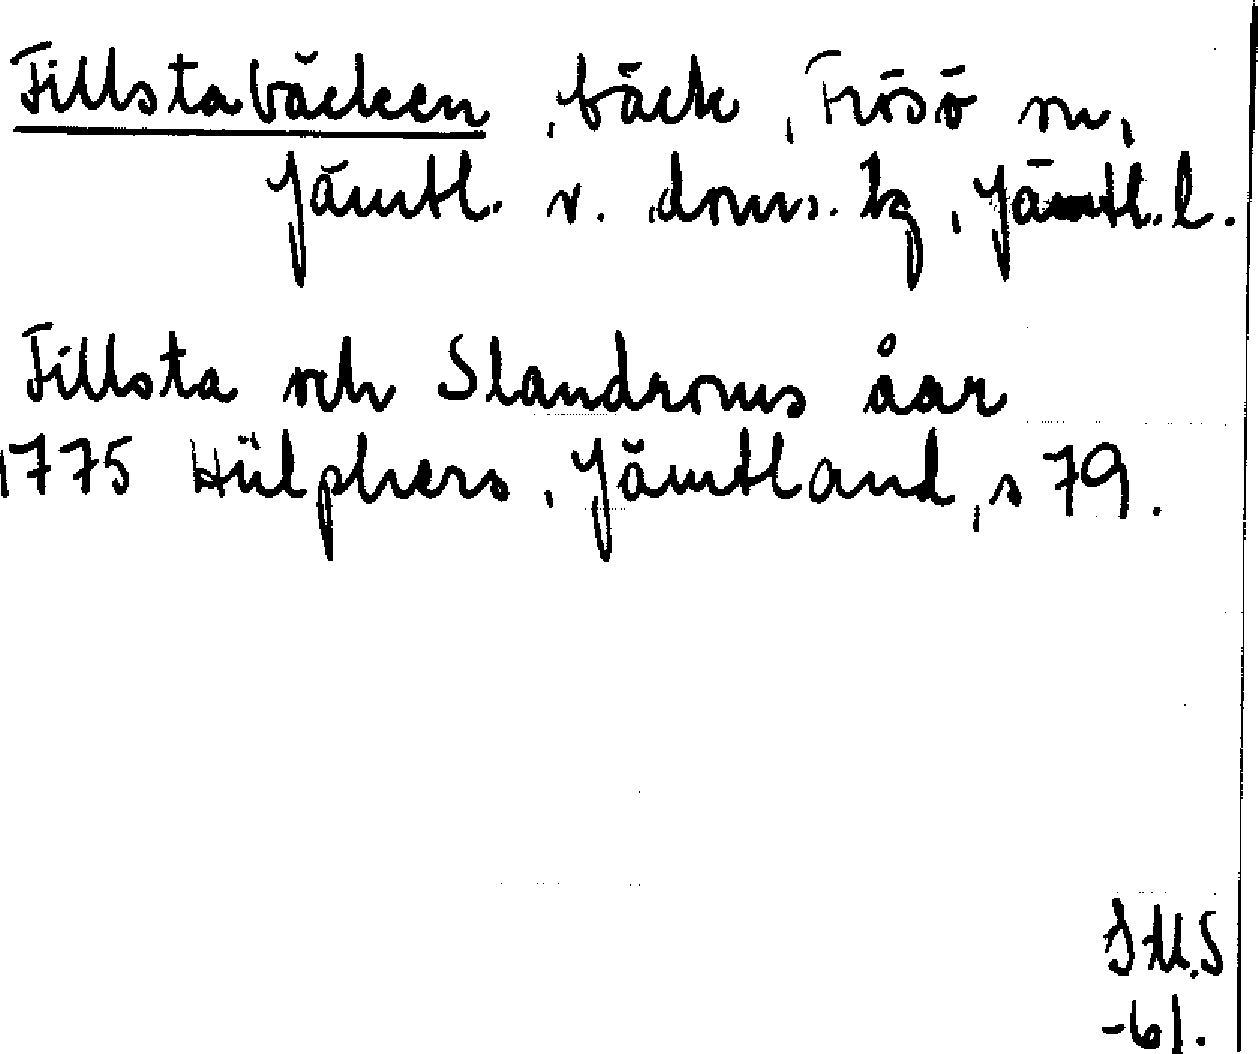 Fillstabäcken, bäck, Frösö sn,
Jämtl. v. doms. tg, Jämtl. l.
Fillsta och Slandroms åar
1775 Hülphers, Jämtland, s 79.
-61.